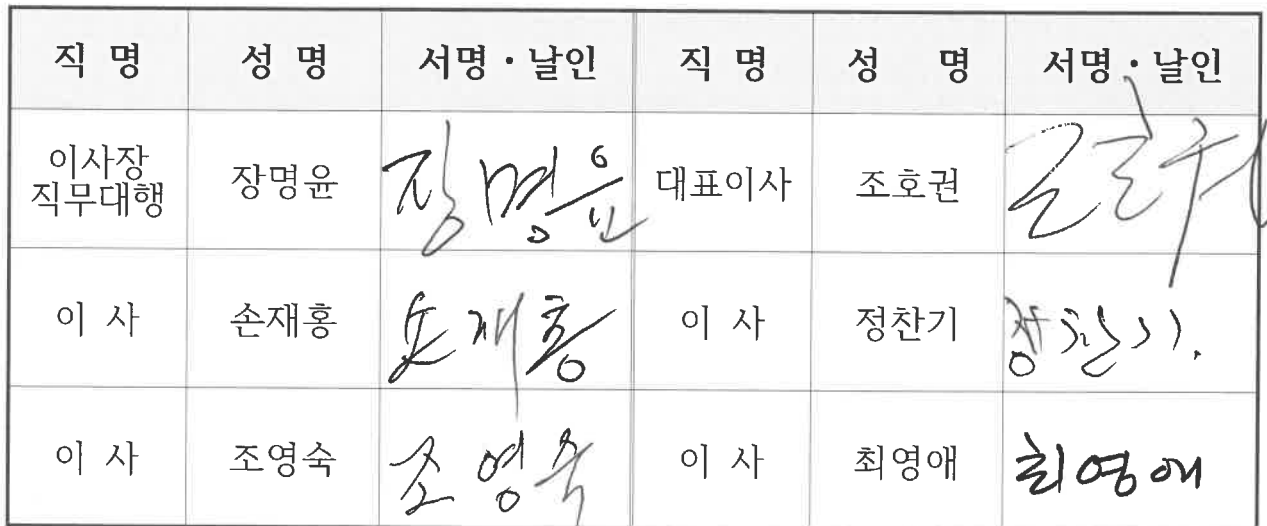 직 명 성 명 서명·날인 직 명 성 명 서명·날인
이사장
직무대행 장명윤 장명윤 대표이사 조호권
이 사 손재홍 손재홍 이 사 정찬기 정찬기.
이 사 조영숙 조영숙 이 사 최영애 최영애